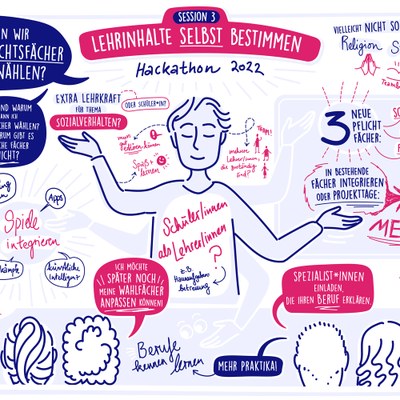 SESSION 3
LEHRINHALTE SELBST BESTIMMEN
Hackathon 2022
N WIR
CHTSFÄCHER
WÄHLEN?
ND WARUM
ANN ICH
CHER WÄHLEN?
RUM GIBT ES
CHE FÄCHER
ICHT?
EXTRA LEHRKRAFT
FÜR THEMA
SOZIALVERHALTEN?
ODER SCHÜLER*IN?
Spaß
lernen
mehrere
Lehrer/innen,
VIELLEICHT NICHT SO
Religion
3 NEUE
PFLICHT
FÄCHER:
IN BESTEHENDE
FÄCHER INTEGRIEREN
ODER PROJEKTTAGE:
ME
Apps
Spiele
integrieren
künstliche
Intelligenz
Schüler/innen
als Lehrer/innen
?
z.B.
Hausaufgaben
Betreuung
ICH MÖCHTE
SPÄTER NOCH
MEINE WAHLFÄCHER
ANPASSEN KÖNNEN!
SPEZIALIST*INNEN
EINLADEN,
DIE IHREN BERUF ERKLÄREN.
Berufe
kennen lernen
MEHR PRAKTIKA!